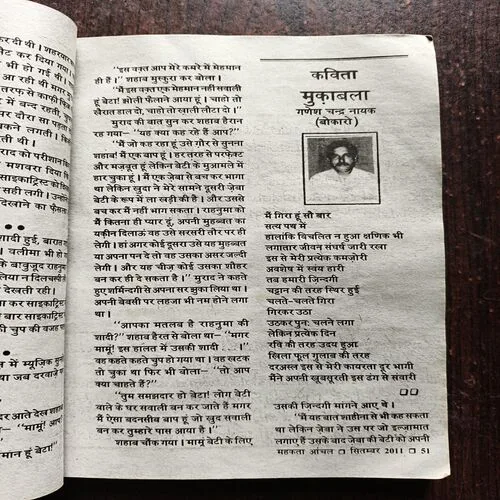 कर दी थी। शहरयार
कर दिया गया।
भी हो गई थी।
आ रही थी मगर
तरफ से काफी
में बन्द रहती,
पर दौरा सा पड़ता
लगती।
को परीशान
मशवरा दिया
साइकाट्रिस्ट को
सही लगी। उन्होंने
दिखलाने का फैसला
शादी हुई, बारात
वलीमा भी हो
के बावुजूद राहनुमा
लिया न दिलचस्पी
देखती रही।
कर साइकाट्रिस्ट
की चुप की वजह
में म्यूजिक
या जब दरवाज़े
आते देख शहाब
मामूं! आप!
मान हूं बेटा!"
"इस वक्त आप मेरे कमरे में मेहमान
ही हैं।" शहाब मुस्कुरा कर बोला।
"मैं इस वक्त एक मेहमान नहीं सवाली
हूं बेटा! झोली फैलाने आया हूं। चाहो तो
ख़ैरात डाल दो, चाहो तो ख़ाली लौटा दो।"
मुराद की बात सुन कर शहाब हैरान
रह गया– "यह क्या कह रहे हैं आप?"
"मैं जो कह रहा हूं उसे ग़ौर से सुनना
शहाब! मैं एक बाप हूं। हर तरह से परफेक्ट
और मज़बूत हूं लेकिन बेटी के मुआमले में
हार चुका हूं। मैं एक ज़ेबा से बच कर भागा
था लेकिन ख़ुदा ने मेरे सामने दूसरी ज़ेबा
बेटी के रूप में ला खड़ी की है। और उससे
बच कर मैं नहीं भाग सकता। राहनुमा को
मैं कितना ही प्यार दूं, अपनी मुहब्बत का
यक़ीन दिलाऊं वह उसे सरसरी तौर पर ही
लेगी। हां अगर कोई दूसरा उसे यह मुहब्बत
या अपना पन दे तो वह उसका असर जल्दी
लेगी। और यह चीज़ कोई उसका शौहर
बन कर ही दे सकता है।" मुराद ने कहते
हुए शर्मिन्दगी से अपना सर झुका लिया था।
अपनी बेबसी पर लहजा भी नम होने लगा
था।
"आपका मतलब है राहनुमा की
शादी?" शहाब हैरत से बोला था– "मगर
मामूं! इस हालत में उसकी शादी . . .।"
वह कहते कहते चुप हो गया था। वह खटक
तो चुका था फिर भी बोला– "तो आप
क्या चाहते हैं?"
"तुम समझदार हो बेटा! लोग बेटी
वाले के घर सवाली बन कर जाते हैं मगर
मैं ऐसा बदनसीब बाप हूं जो ख़ुद सवाली
बन कर तुम्हारे पास आया है।"
शहाब चौंक गया। मामूं बेटी के लिए
कविता
मुक़ाबला
गणेश चन्द्र नायक
(बोकारो)
मैं गिरा हूं सौ बार
सत्य पथ में
हालांकि विचलित न हुआ क्षणिक भी
लगातार जीवन संघर्ष जारी रखा
इस से मेरी प्रत्येक कमज़ोरी
अवशेष में स्वंय हारी
तब हमारी ज़िन्दगी
चट्टान की तरह स्थिर हुई
चलते-चलते गिरा
गिरकर उठा
उठकर पुन: चलने लगा
लेकिन प्रत्येक दिन
रवि की तरह उदय हुआ
खिला फूल गुलाब की तरह
दरअस्ल इस से मेरी कायरता दूर भागी
मैंने अपनी ख़ूबसूरती इस ढंग से संवारी
उसकी ज़िन्दगी मांगने आए थे।
"मैं यह बात शाहीना से भी कह सकता
था लेकिन ज़ेबा ने उस पर जो इल्ज़ामात
लगाए हैं उसके बाद ज़ेबा की बेटी को अपनी
महकता आंचल □ सितम्बर 2011 □ 51